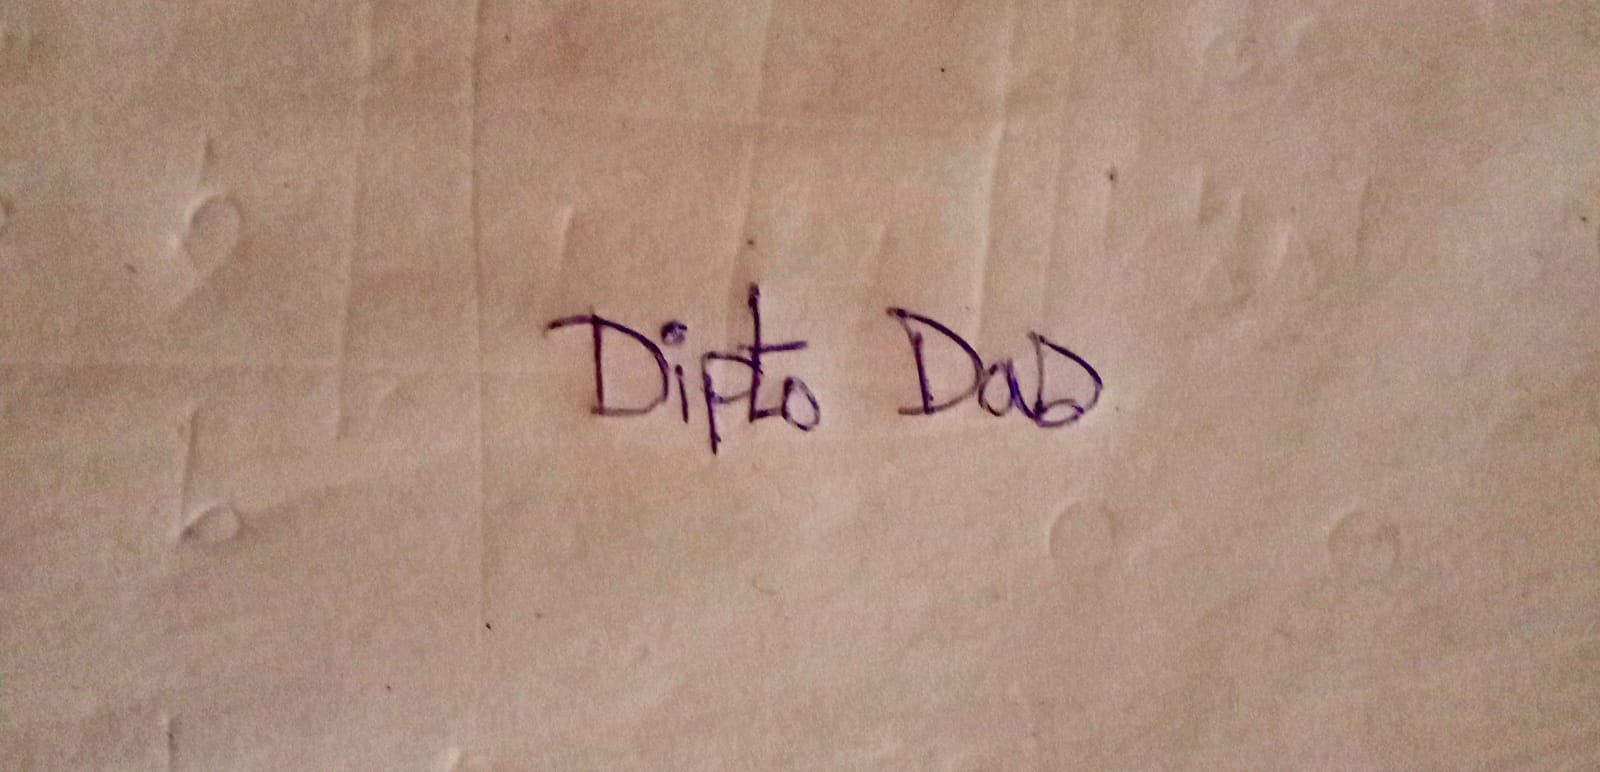 Dipto Das